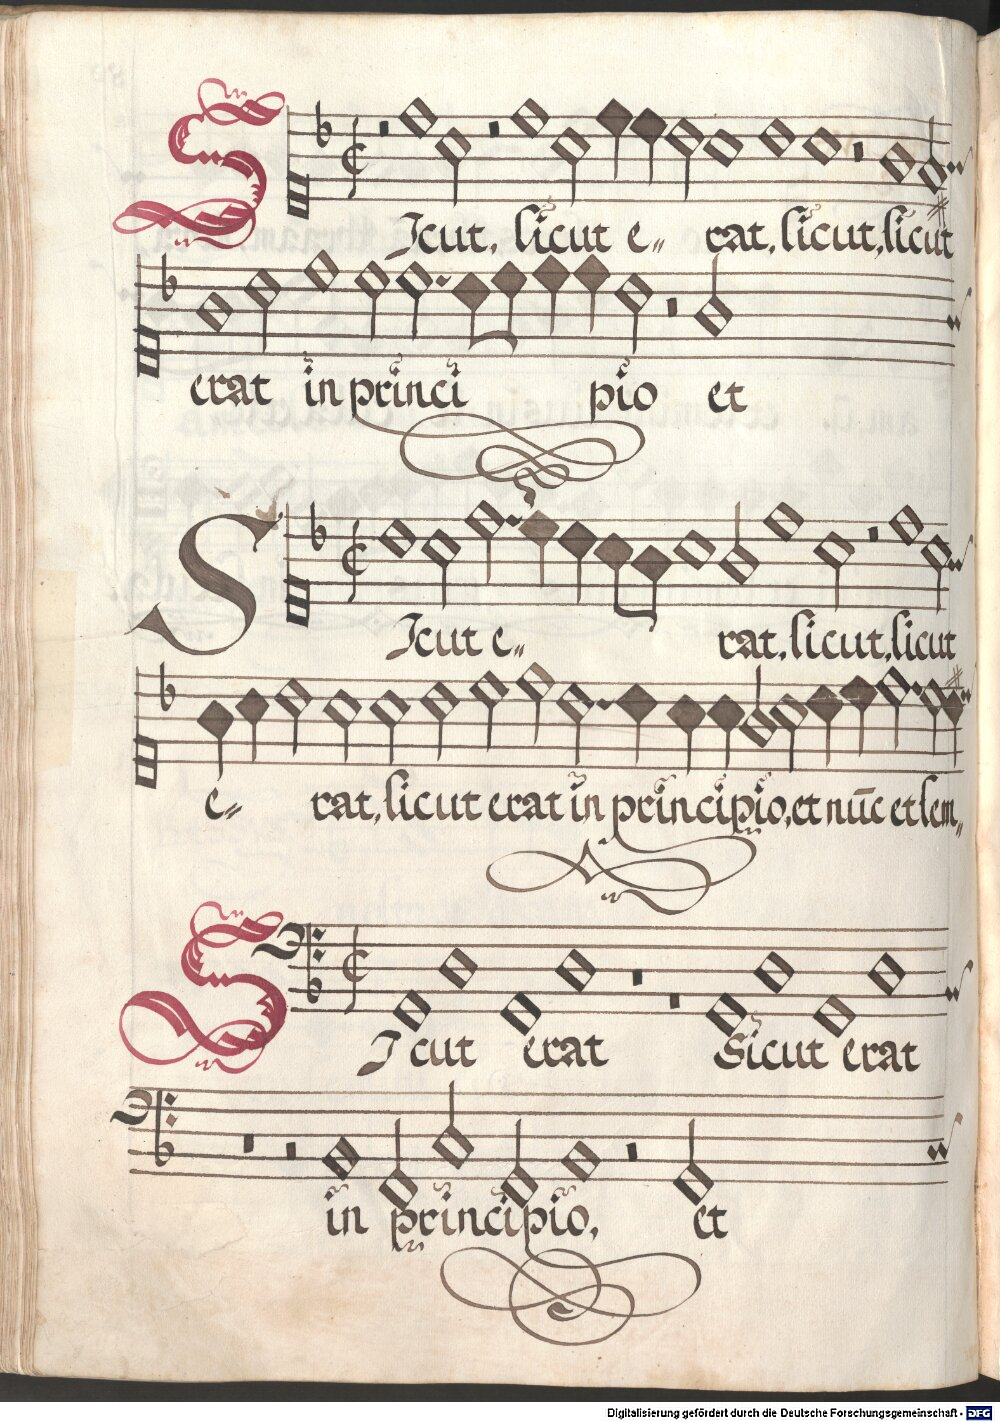 SIcut, sicut e„ rat, sicut, sicut
erat in princi pio et
SIcut e„ rat, sicut, sicut
e„ rat, sicut erat in principio, et nūc et sem„
SIcut erat Sicut erat
in principio, et
Digitalisierung gefördert durch die Deutsche Forschungsgemeinschaft - DFG